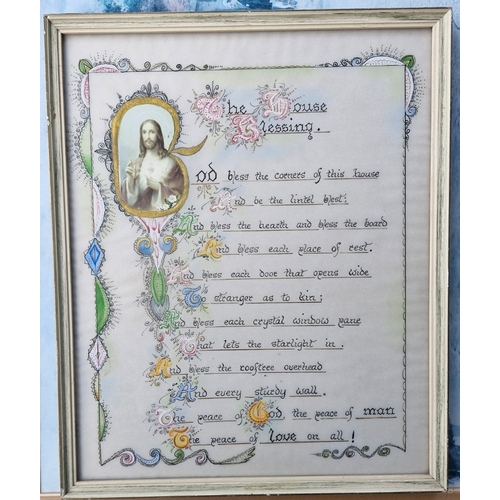 The House
Blessing.
God bless the corners of this house
And be the lintel blest:
And bless the hearth and bless the board
And bless each place of rest.
And bless each door that opens wide
To stranger as to kin;
And bless each crystal window pane
That lets the starlight in.
And bless the rooftree overhead
And every sturdy wall.
The peace of God, the peace of man
The peace of love on all!